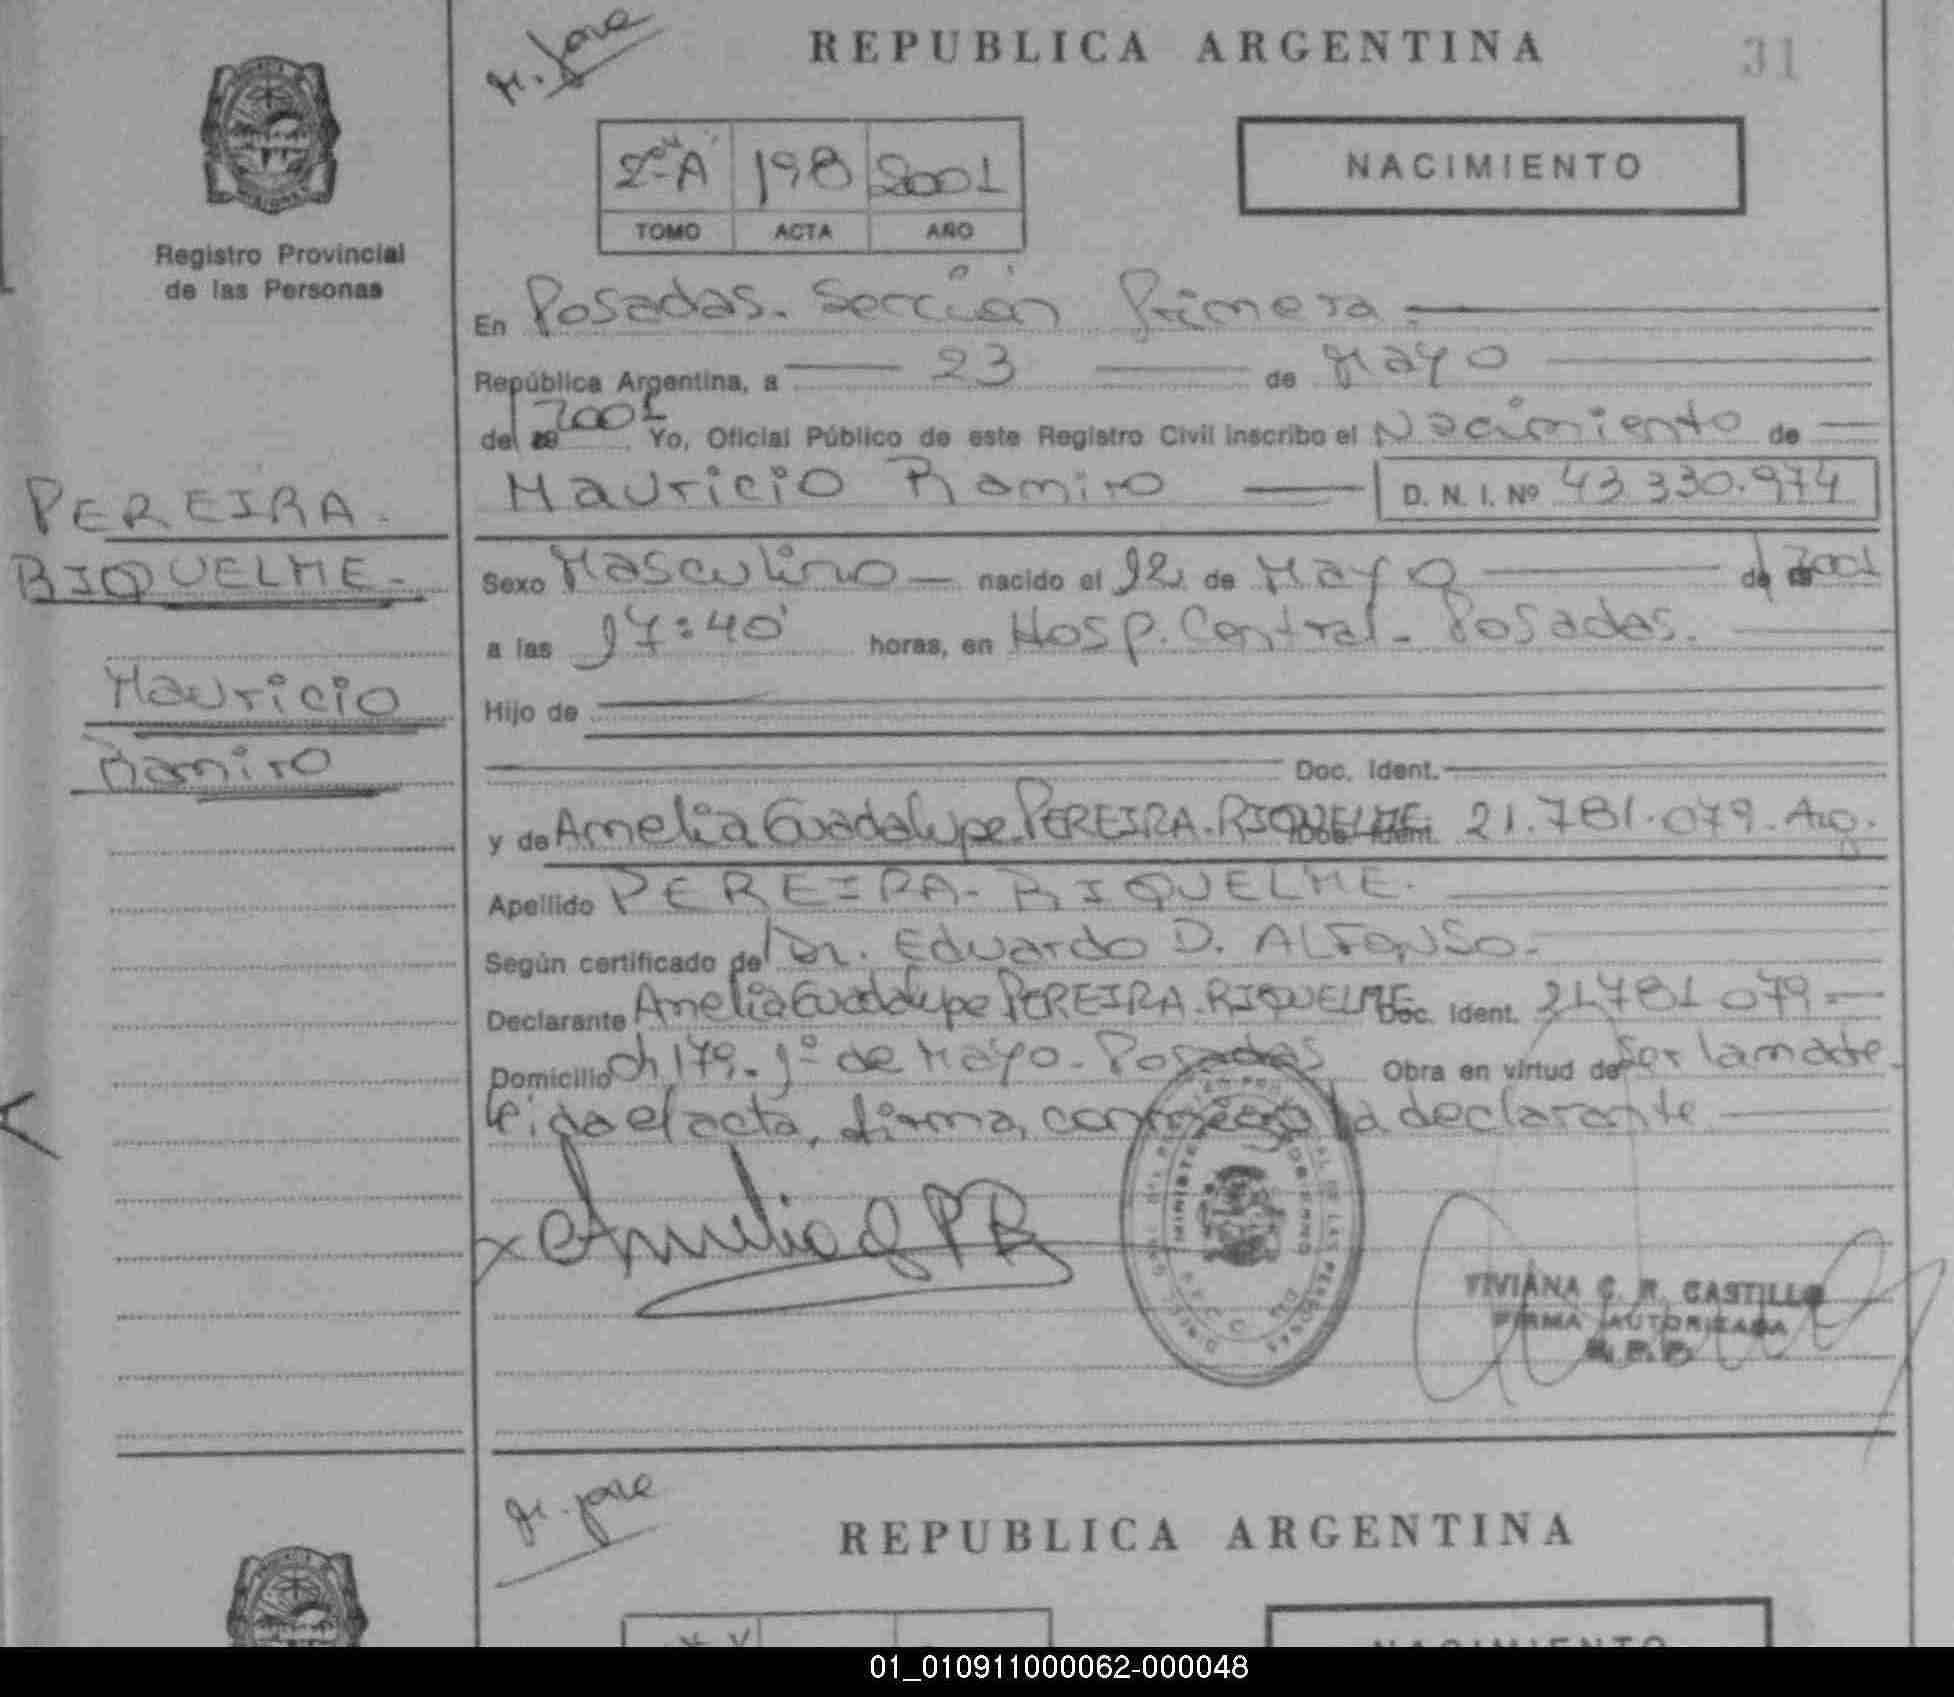 M. Jose
REPUBLICA ARGENTINA
31
2º "A" 198 2001
TOMO ACTA AÑO
NACIMIENTO
Registro Provincial
de las Personas
En Posadas. Sección Primera.
República Argentina, a 23 de Mayo
del 2001 Yo, Oficial Público de este Registro Civil inscribo el Nacimiento de
Mauricio Ramiro D. N. I. Nº 43.330.974
PEREIRA.
RIQUELME.
Mauricio
Ramiro
Sexo Masculino nacido el 12 de Mayo del 2001
a las 17:40' horas, en Hosp. Central. Posadas.
Hijo de
Doc. Ident.
y de Amelia Guadalupe PEREIRA.RIQUELME Doc. Ident. 21.781.079. Arg.
Apellido PEREIRA-RIQUELME.
Según certificado del Dr. Eduardo D. ALFONSO.
Declarante Amelia Guadalupe PEREIRA.RIQUELME Doc. Ident. 21781079
Domicilio Ch 179. 1º de Mayo. Posadas Obra en virtud de ser la madre.
Leida el acta, firma, conmigo la declarante
Amelia G P R
MINISTERIO DE GOBIERNO
VIVIANA C. R. CASTILLO
FIRMA AUTORIZADA
R. P. P.
M. Jose
REPUBLICA ARGENTINA
NACIMIENTO
01_010911000062-000048